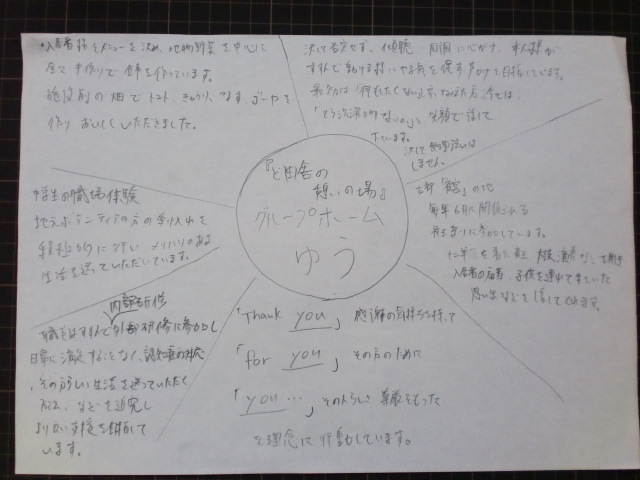 ・入居者様とメニューを決め、地物野菜を中心に
全て手作りで食事を作っています。
施設前の畑でトマト、きゅうり、なす、ゴーヤを
作りおいしくいただきました。
決して否定せず、傾聴・同調に心がけ、
すすんで動ける様にやる気を促す声かけを目指しています。
最初は「何もしたくない」と
「もう洗濯物ないの」と笑顔で話して
下さいます。
決して無理強いは
しません。
『ど田舎の
憩いの場』
グループホーム
ゆう
中学生の職場体験
地元ボランティアの方の受け入れを
積極的に行い メリハリのある
生活を送っていただいています。
の地
毎年6月に開催される
に参加しています。
入居者の
思い出などを話してくれます。
内部研修
職員はすすんで外部研修に参加し
日常に満足することなく、認知症の対応
、その方らしい生活を送っていただく
などを追究し
より良い支援を目指して
います。
「Thank you」感謝の気持ちを持って
「for you」その方のために
「you…」その人らしさ 尊厳をもった
を理念に行動しています。